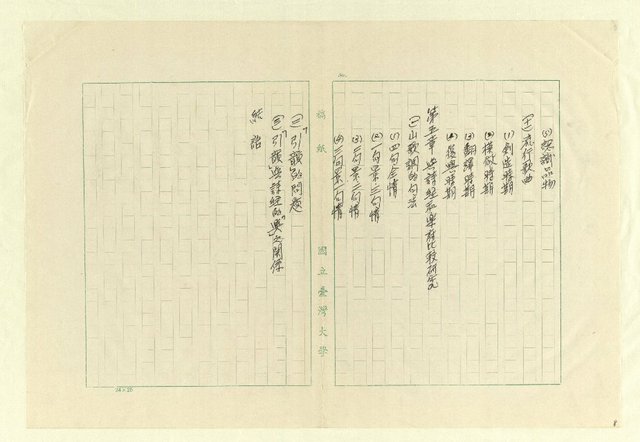 (5) 認識品物
(十一) 流行歌曲
(1) 創造時期
(2) 模倣時期
(3) 翻譯時期
(4) 復興時期
第五章 與詩經和樂府比較研究
(一) 山歌調的句法
(1) 四句全情
(2) 一句景、三句情
(3) 二句景、二句情
(4) 三句景、一句情
稿紙 國立臺灣大學
(二)「引韻」的問題
(三)「引韻」與詩經的「興」之關係
結語
24×25
8